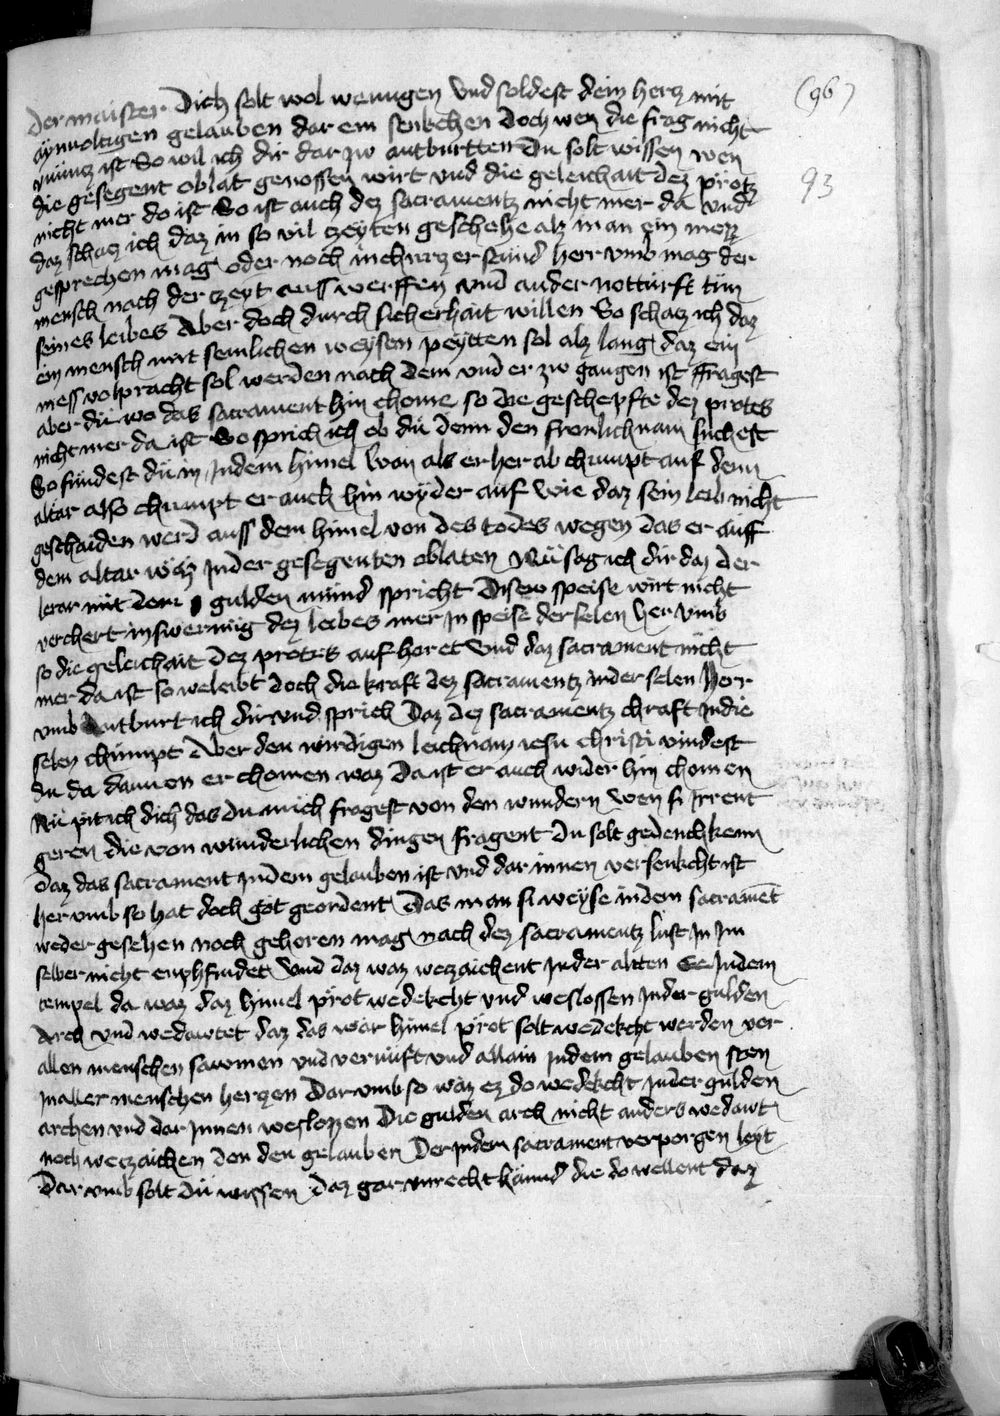 (96)
93
Der maister Dich solt wol wenugen vnd soldest dein hercz mit
aynuoltigen gelauben dar ein senkchen Doch wen die frag nicht
vnnucz ist So wil ich dir dar zw antburtten Du solt wissen wen
die gesegent oblat genossen wirt vnd die geleichait dez prötz
nicht mer do ist So ist auch dez sacramentz nicht mer da vnd
daz schacz ich daz in so vil czeyten geschehe alz man ein mess
gesprechen mag oder noch in churczer stund her vmb mag der
mensch nach der czeyt auss werffen vnd ander notturft tun
seines leibes Aber doch durch sicherhait willen So schacz ich daz
ein mensch mit semlichen weysen peytten sol alz lang daz ein
mess volpracht sol werden nach dem vnd er zw gangen ist ffragest
aber du wo das sacrament hin chome so die geschepfte dez protes
nicht mer da ist So sprich ich ob du denn den fronlichnam suchest
So findest du in Indem himel Wan als er her ab chumpt auf denn
altar also chumpt er auch hin wyder auf Wie daz sein leib nicht
geschaiden werd auss dem himel von des todes wegen das er auff
dem altar waz Inder gesegenten oblaten Nu sag ich dir daz der
lerar mit dem gulden mund spricht Disew speise wirt nicht
verchert in swermig dez leibes mer In speise der selen her vmb
so die geleichait dez protes auf horet Vnd daz sacrament nicht
mer da ist so weleibt doch die kraft dez sacramentz inder selen Her
vmb Antburt ich dir vnd sprich Daz dez sacramentz chraft Indie
selen chumpt Aber den wirdigen leichnam iesu christi vindest
du da dannen er chomen waz Da ist er auch wider hin chomen
Nu pit ich dich das du mich fragest von den wundern Wen si Irrent
geren die von wunderlichen dingen fragent Du solt gedenchkenn
daz das sacrament Indem gelauben ist vnd dar innen versenkcht ist
her vmb so hat doch got geordent Das man si weyse indem sacrament
weder gesehen noch gehoren mag nach dez sacramentz lust In Im
selber nicht enphfindet Vnd daz waz weczaichent Inder altten Ee Indem
tempel da waz daz himel pröt wedekcht vnd weslossen Inder gulden
Arch vnd wedawtet daz das wär himel pröt solt wedekcht werden vor
allen menschen sawmen vnd vernuft vnd allain Indem gelauben sten
In aller menschen herczen Dar vmb so waz ez do wedekcht Inder gulden
archen vnd dar Innen weslossen Die gulden arch nicht anders wedawt
noch weczaichen den den gelauben Der Indem sacrament verporgen leyt
Dar vmb solt du wissen Daz gar vnrecht sind die do wellent daz